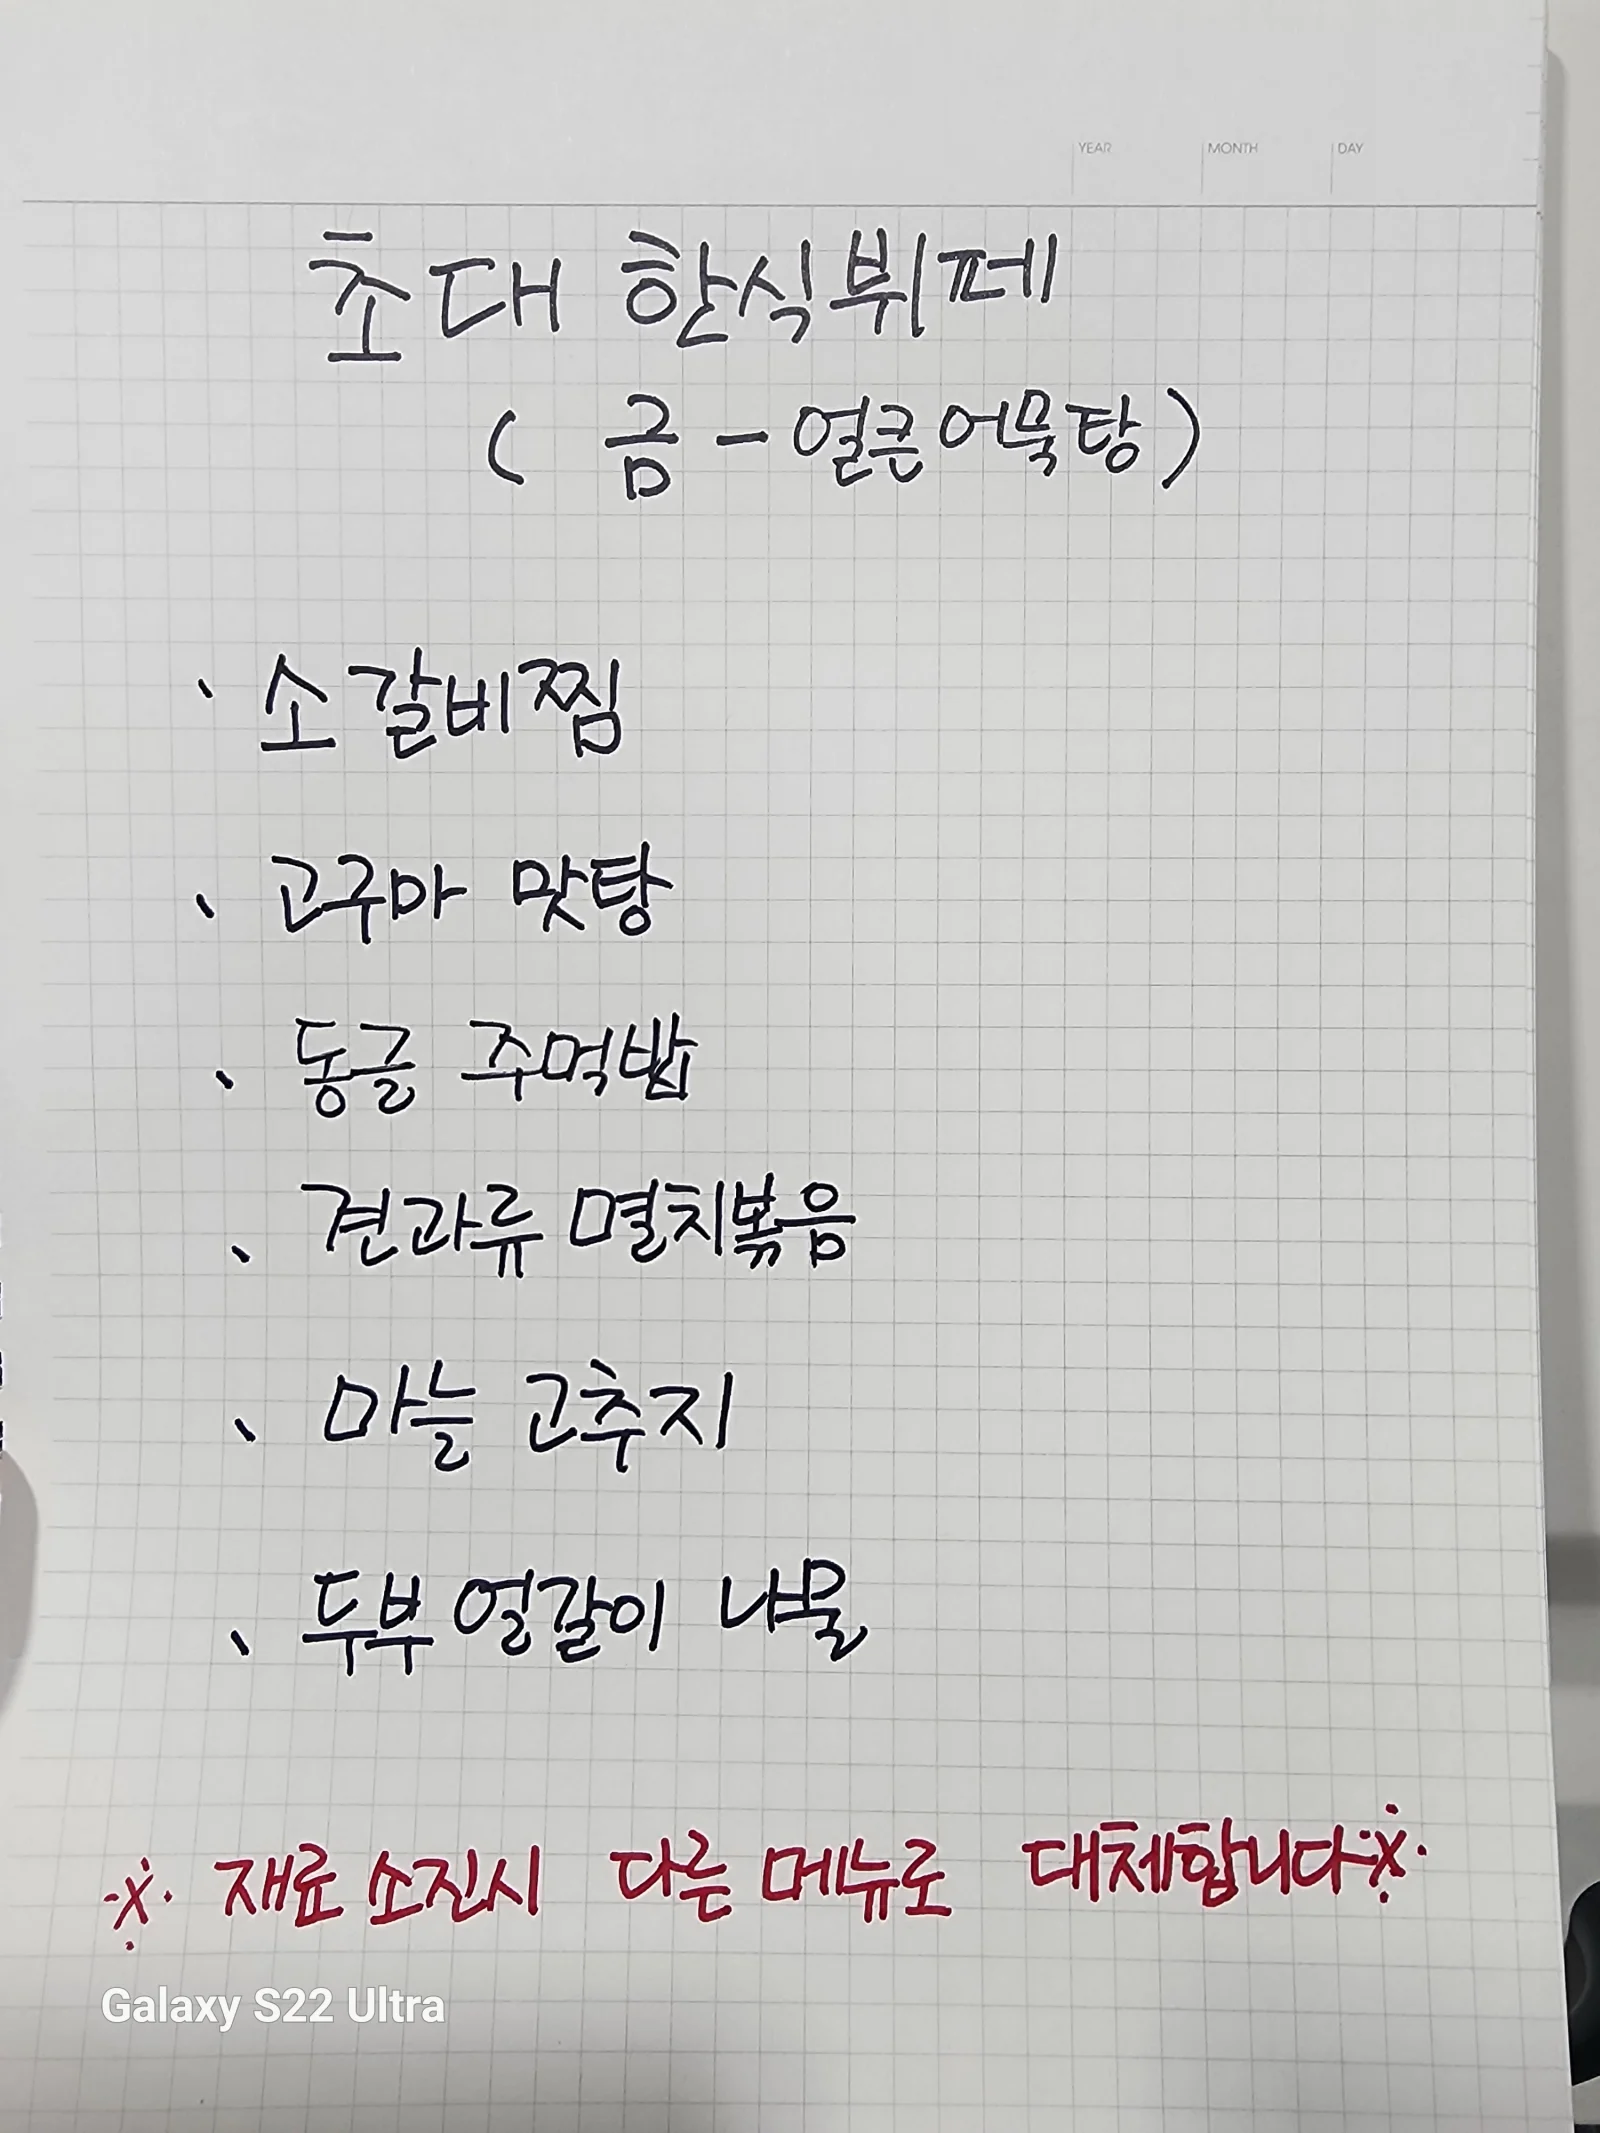 YEAR MONTH DAY
초대 한식뷔페
( 금 - 얼큰어묵탕 )
· 소갈비찜
· 고구마 맛탕
· 동글 주먹밥
· 견과류 멸치볶음
· 마늘 고추지
· 두부 얼갈이 나물
※ 재료 소진시 다른 메뉴로 대체합니다※
Galaxy S22 Ultra